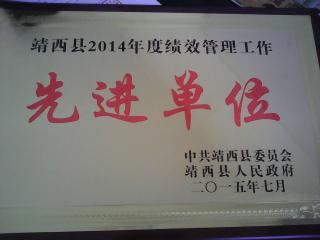 靖西县2014年度绩效管理工作
先进单位
中共靖西县委员会
靖西县人民政府
二〇一五年七月